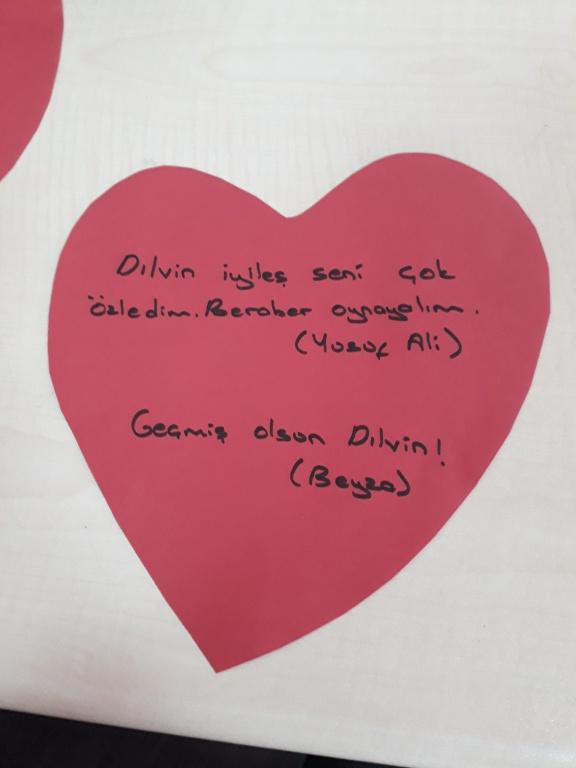 Dılvin iyileş seni çok
özledim. Beraber oynayalım.
(Yusuf Ali)
Geçmiş olsun Dılvin!
(Beyza)